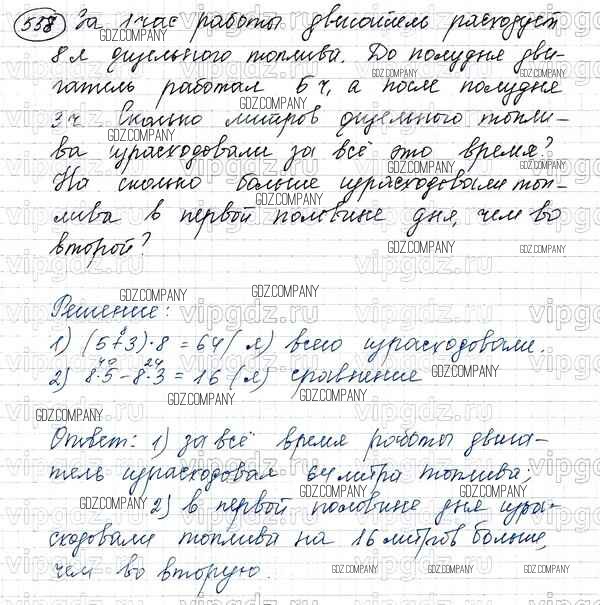 558 За 1 час работы двигатель расходует
8 л дизельного топлива. До полудня дви-
гатель работал 5 ч, а после полудня
3 ч. Сколько литров дизельного топли-
ва израсходовали за всё это время?
На сколько больше израсходовали топ-
лива в первой половине дня, чем во
второй?
Решение:
1) (5+3)·8 = 64 (л) всего израсходовали.
2) 8·5 - 8·3 = 16 (л) сравнение
Ответ: 1) за всё время работы двига-
тель израсходовал 64 литра топлива;
2) в первой половине дня изра-
сходовали топлива на 16 литров больше,
чем во вторую.